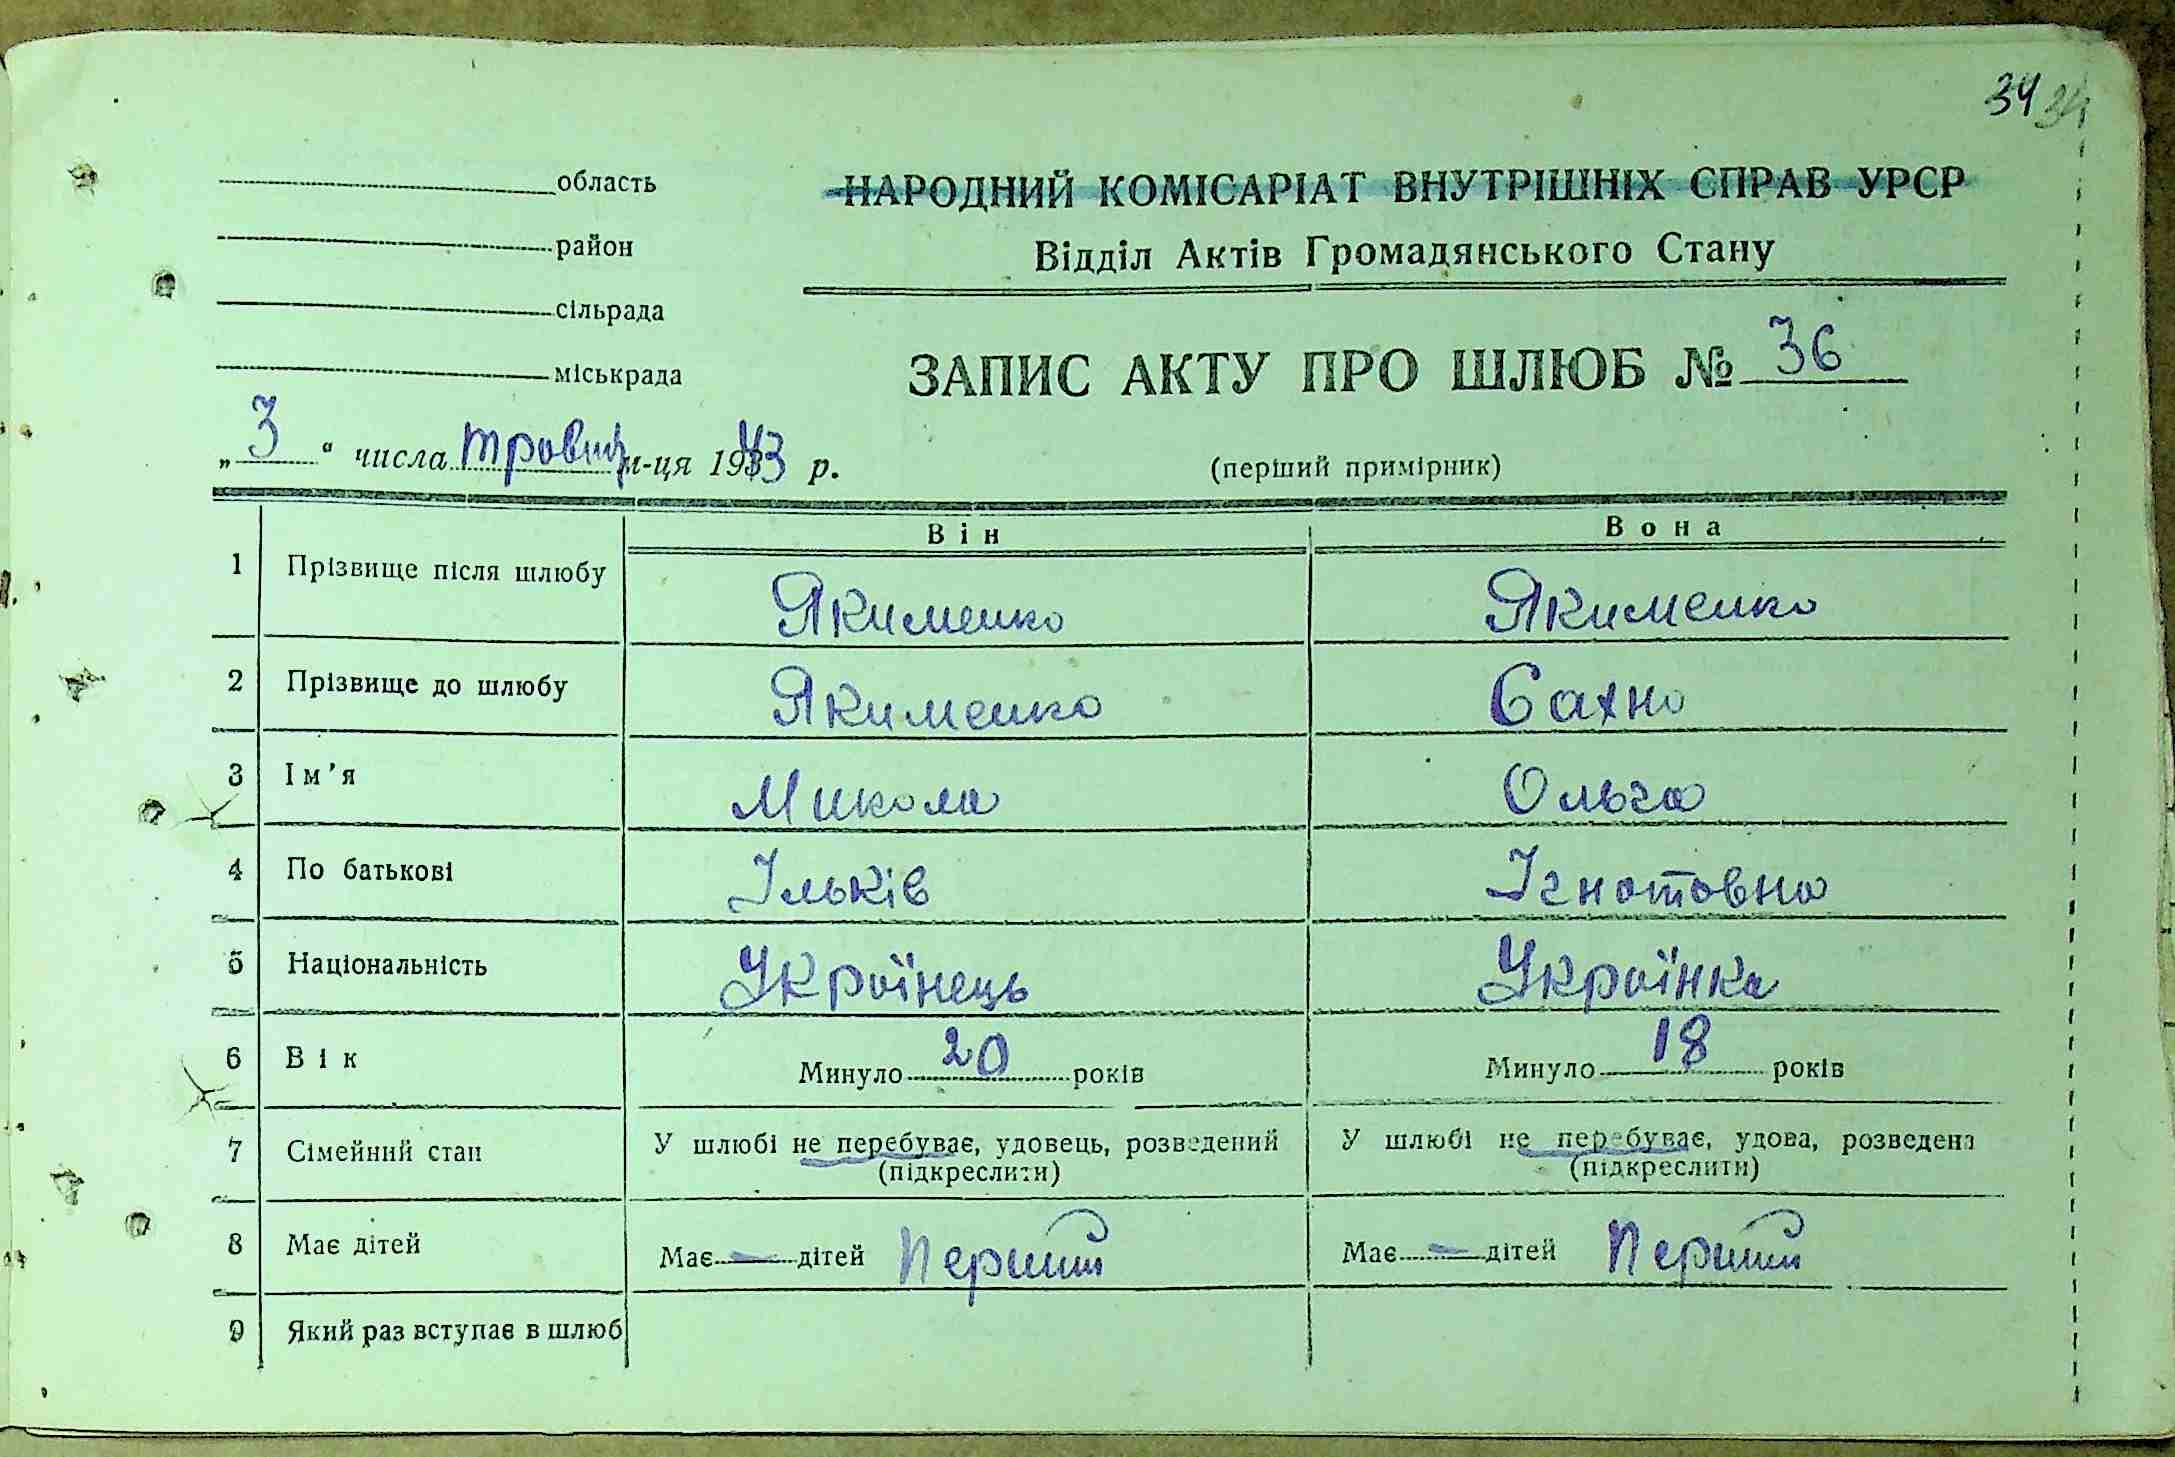 34 34
область
район
сільрада
міськрада
НАРОДНИЙ КОМІСАРІАТ ВНУТРІШНІХ СПРАВ УРСР
Відділ Актів Громадянського Стану
ЗАПИС АКТУ ПРО ШЛЮБ № 36
„3“ числа травня м-ця 1943 р.
(перший примірник)
Він Вона
1 Прізвище після шлюбу Якименко Якименко
2 Прізвище до шлюбу Якименко Сахно
3 Ім'я Микола Ольга
4 По батькові Ільків Ігнатовна
5 Національність Українець Українка
6 Вік Минуло 20 років Минуло 18 років
7 Сімейний стан У шлюбі не перебуває, удовець, розведений У шлюбі не перебуває, удова, розведена
(підкреслити) (підкреслити)
8 Має дітей Має — дітей Перший Має — дітей Перший
9 Який раз вступає в шлюб